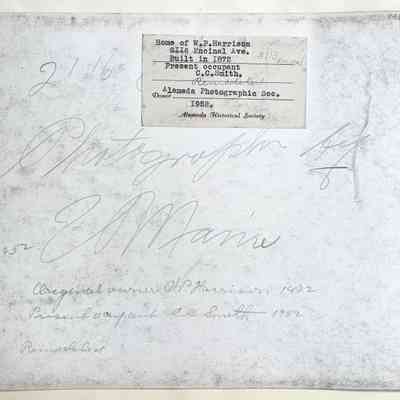 Home of W.P.Harrison
2116 Encinal Ave.
Built in 1872
Present occupant
C.C.Smith.
Remodeled
Alameda Photographic Soc.
Donor
1952.
Alameda Historical Society
Photographer by
E A Maine
Original owner W P Harrison
Present occupant C C Smith 1952
Remodeled